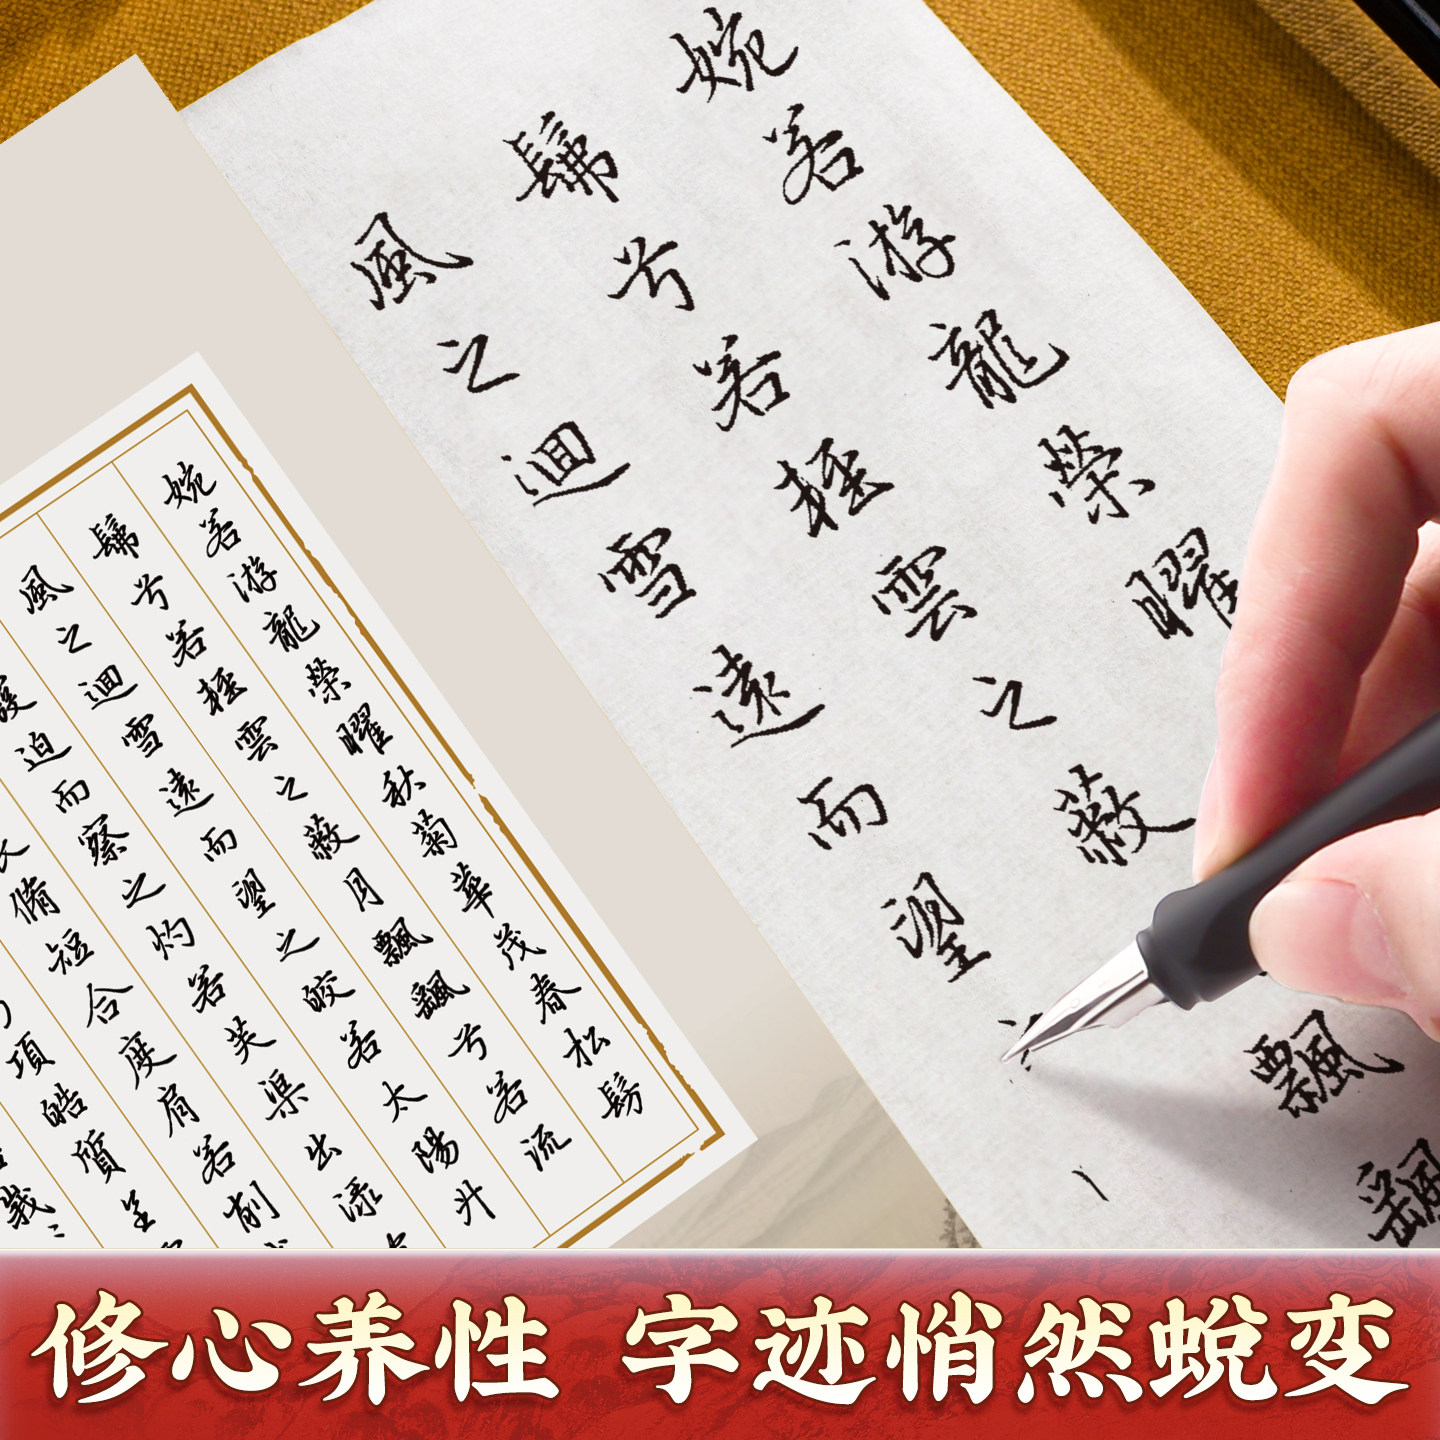 婉若游龍榮曜
髴兮若輕雲之蔽
飄飖
風之迴雪遠而望
婉若游龍榮曜秋菊華茂春松髣
髴兮若輕雲之蔽月飄飖兮若流
風之迴雪遠而望之皎若太陽升
霞迫而察之灼若芙渠出淥
脩短合度肩若削
項皓質呈
修心养性 字迹悄然蜕变